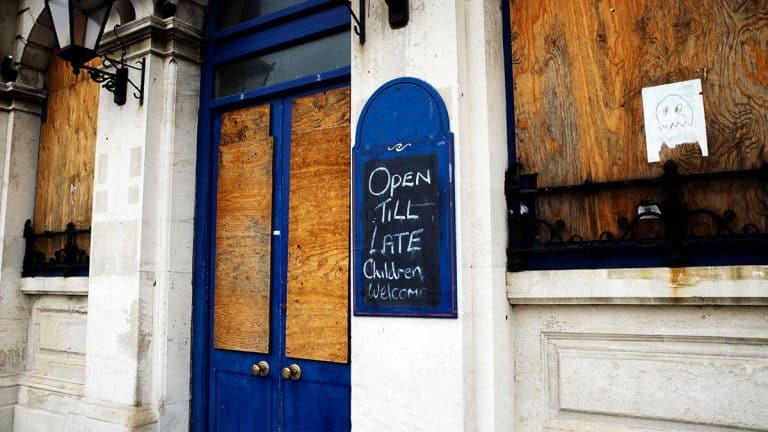 OPEN
TILL
LATE
Children
Welcome